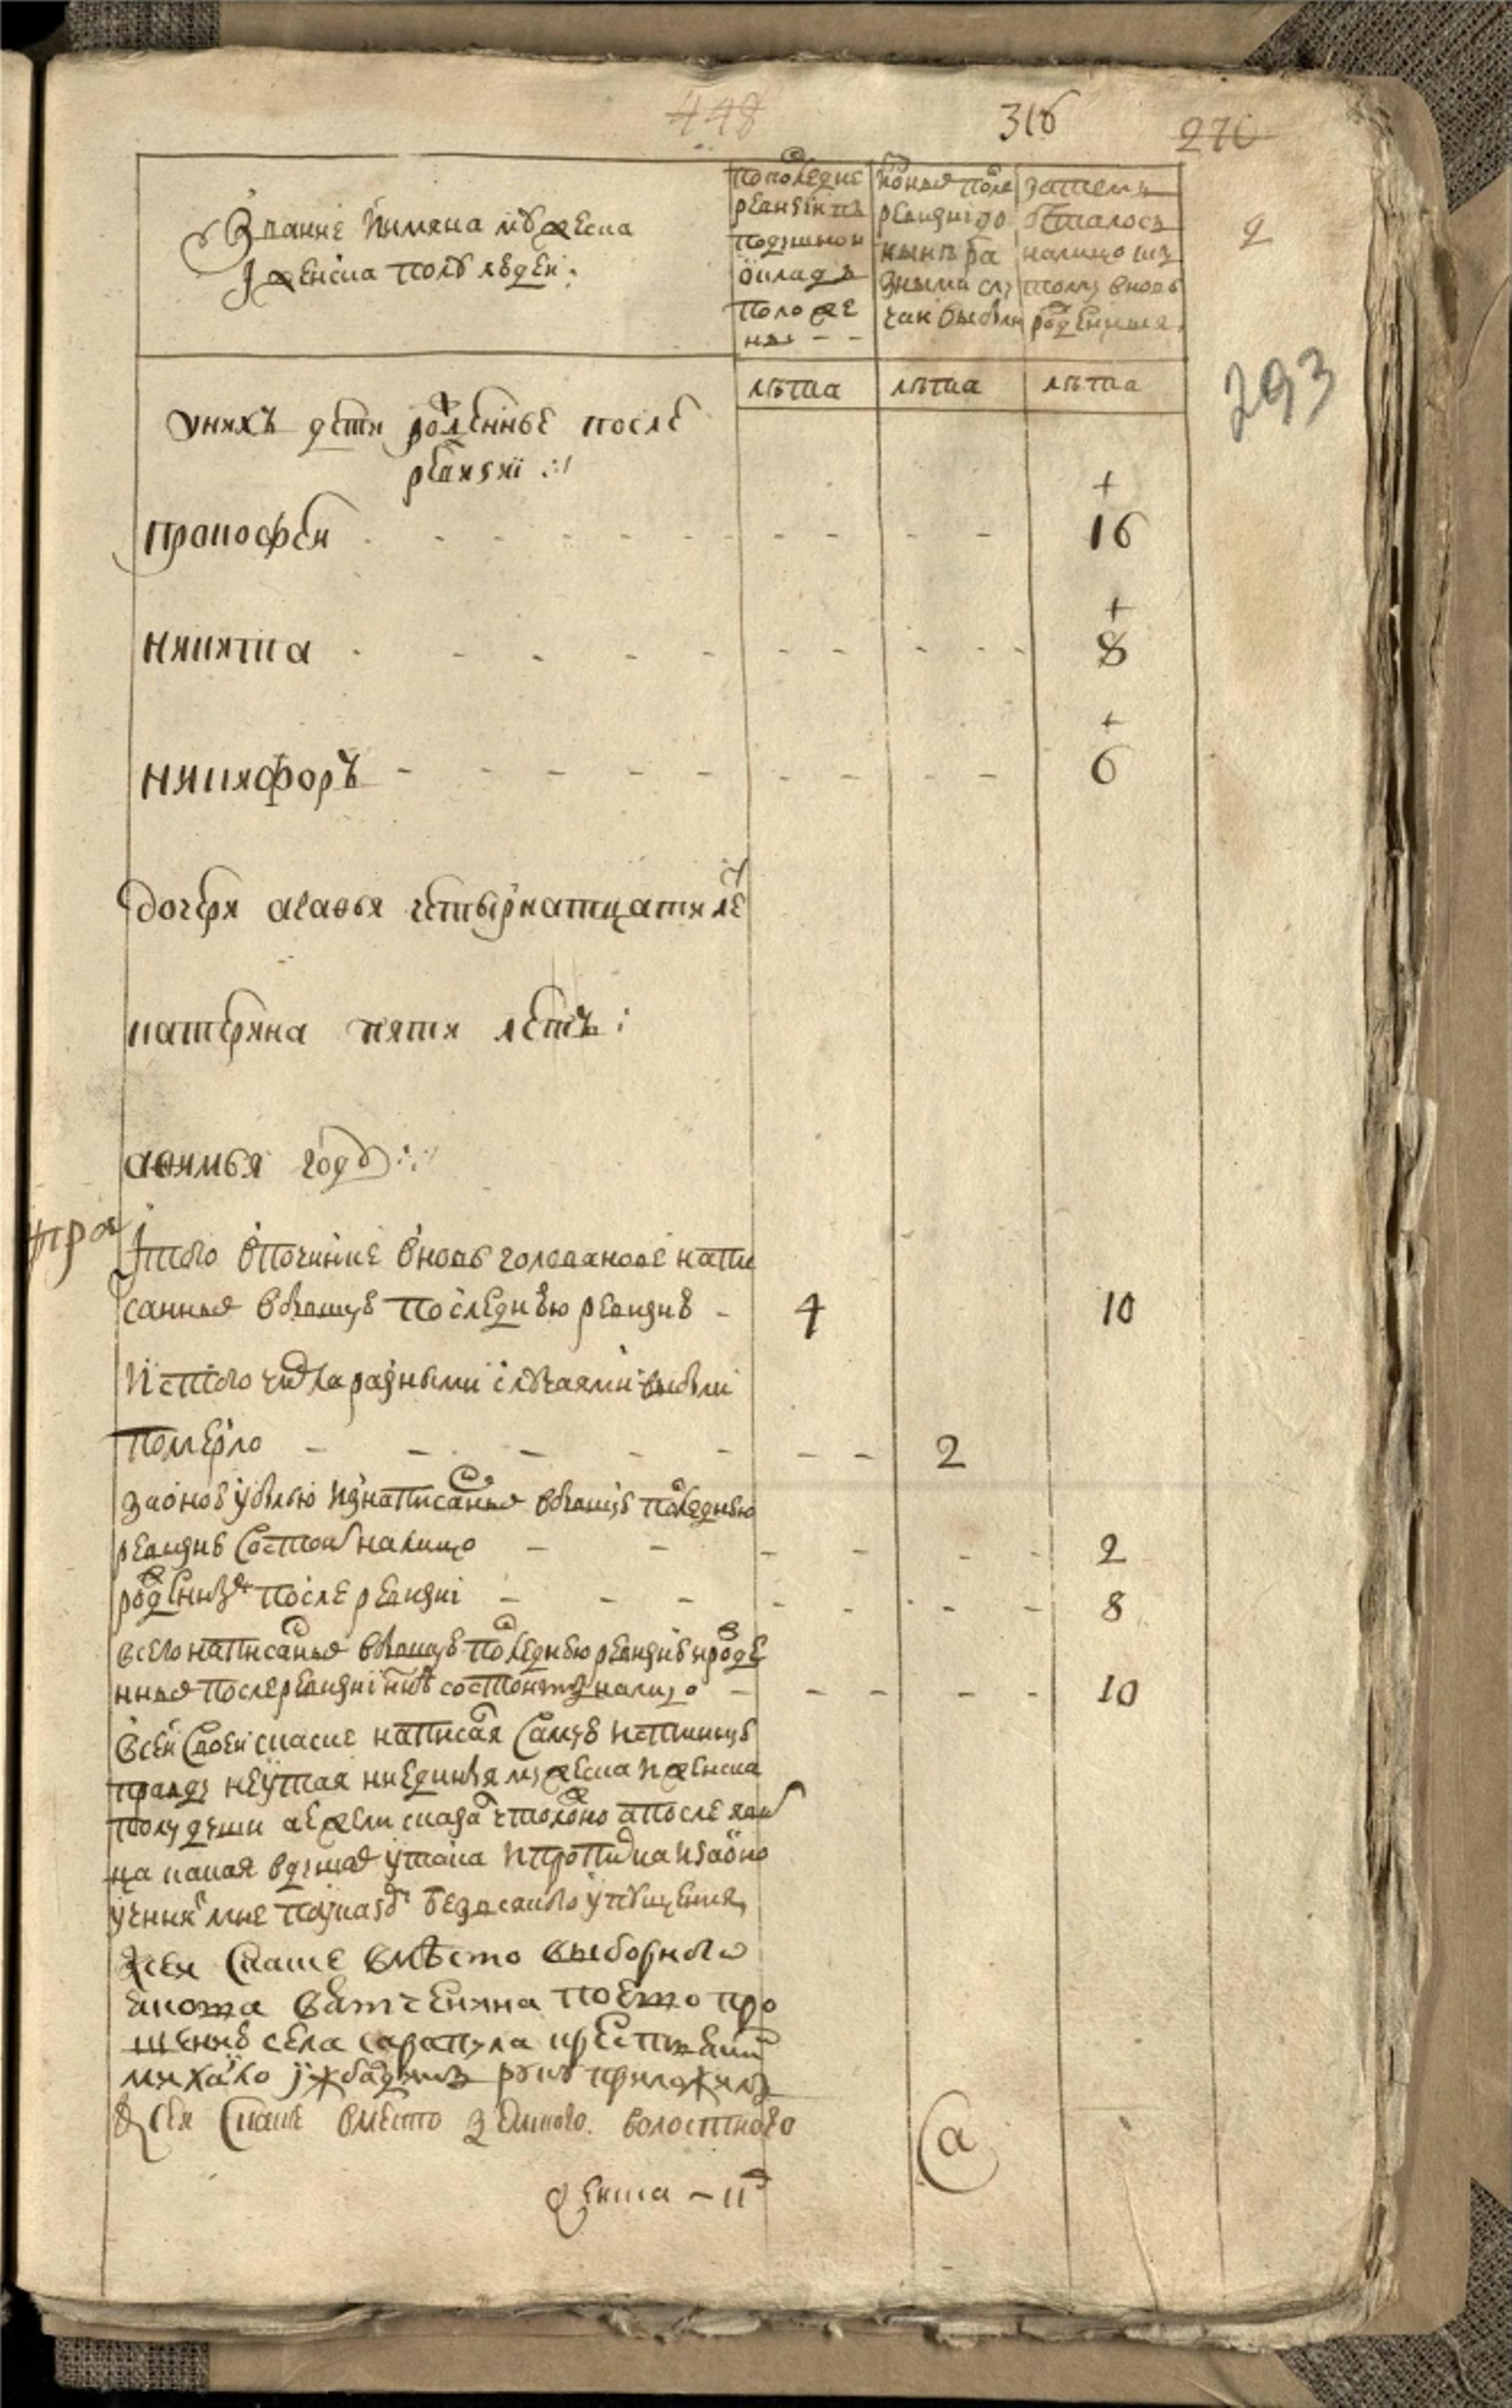 448 316 270
Звание і имяна мужеска
і женска полу людеи:
По последне ревизии въ подушнои окладъ положены --
ис оных после ревизи до ныне разными случаи выбыли
затемъ осталось налицо ис тому вновь рожденныя
2
лѣта лѣта лѣта
293
у нихъ дети рожденные после
ревизии
+
прокофеи 16
+
никита 8
+
никифоръ 6
дочери авдотья четырнатцати ле
катерина пяти летъ:
афимья году
Итого в починке вновь головановѣ напи
санных в бывшую последнюю ревизию - 4 10
Ис того числа разными случаями выбыли
померло 2
За оною убылью из написанных в бывшую последнюю
ревизию состоит налицо - 2
рожденных после ревизиі - 8
всего написанных в бывшую последнюю ревизию и рожде
нных после ревизиі ныне состоитъ налицо - 10
В сеи своеи скаске написал самую истинную
правду не утая ни единыя мужеска и женска
полу души а ежели сказал что ложно а после явит
ца какая в душах утаика и прописка и за оно
учинят мне по указу без всякого упущения
К сеи скаске вмѣсто выборного
вятченина по ево про
шению села сарапула крестьянин
михаило руку приложилъ
К сеи скаске вместо земского волостного
а